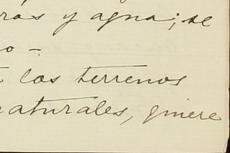 ras y agua; se
o-
los terrenos
naturales, quiere